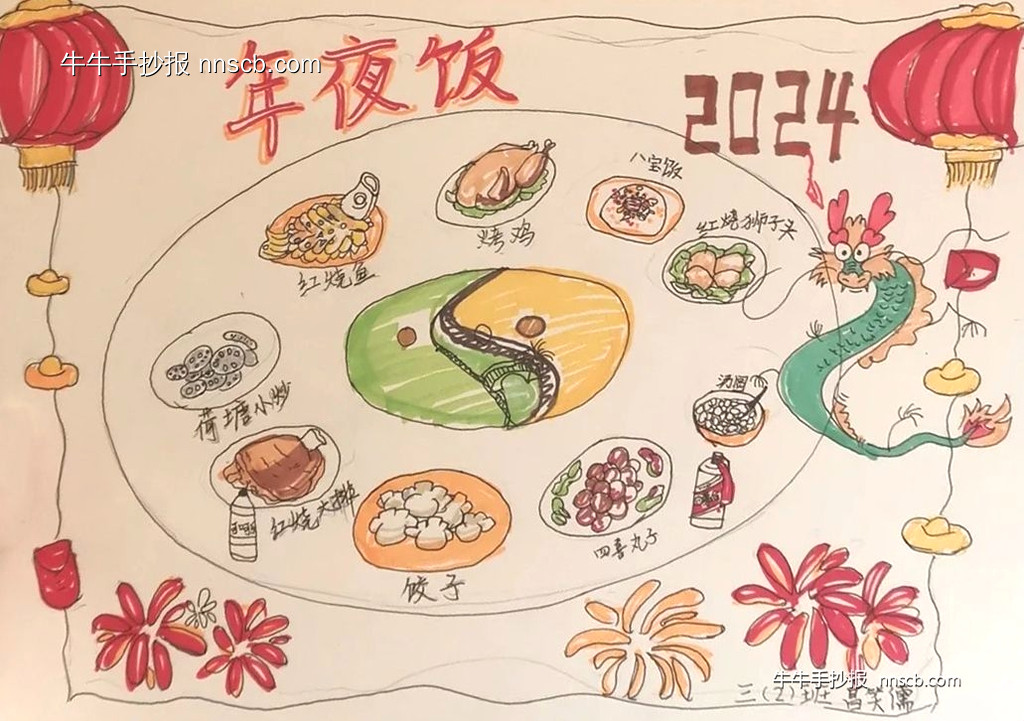 牛牛手抄报 nnscb.com
年夜饭
2024
八宝饭
红烧狮子头
烤鸡
红烧鱼
汤圆
荷塘小炒
红烧大排
四喜丸子
饺子
牛牛手抄报 nnscb.com
三(2)班